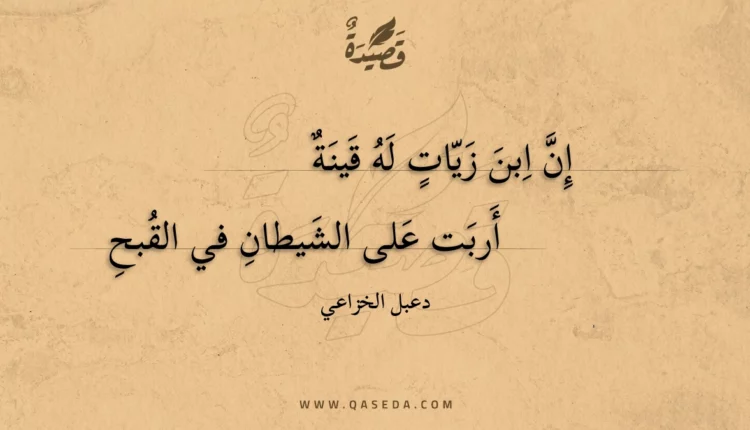 قَصِيْدَةٌ
إِنَّ اِبنَ زَيّاتٍ لَهُ قَينَةٌ
أَربَت عَلى الشَيطانِ في القُبحِ
دعبل الخزاعي
WWW.QASEDA.COM